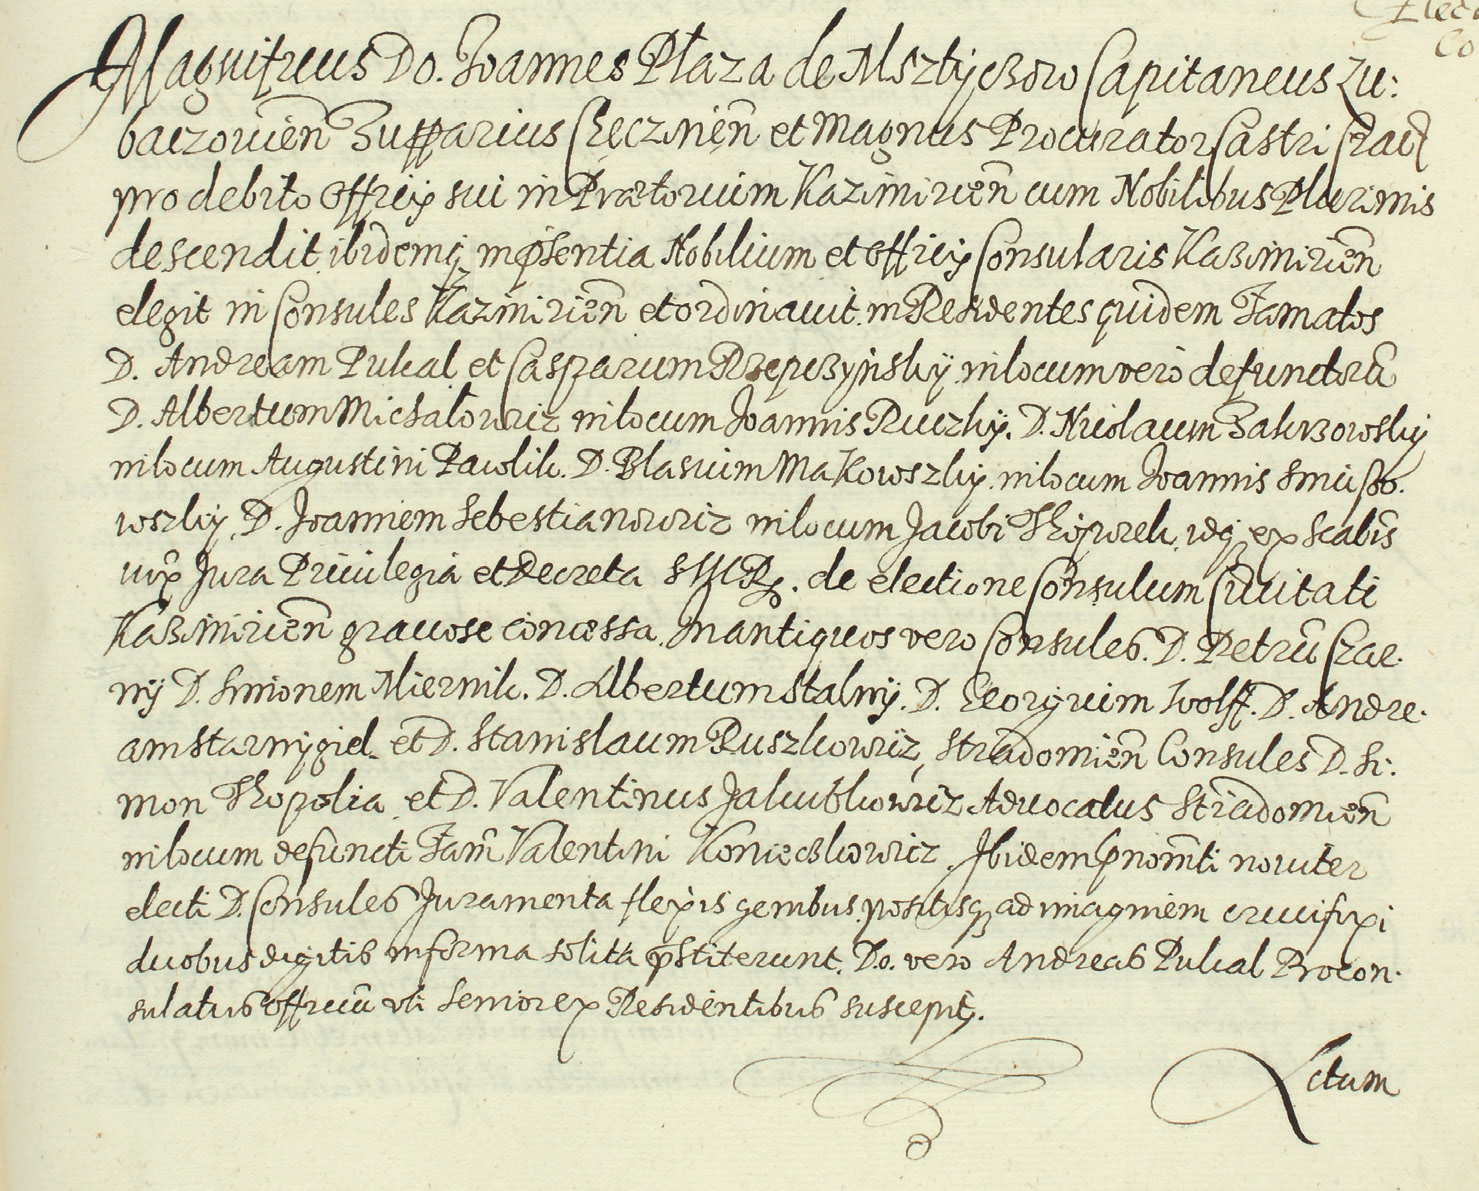 Elec
Co
Magnificus Do. Joannes Płaza de Msztyczow Capitaneus Lu:
baczovien Zupparius Chęczinen et Magnus Procurator Castri Crac
pro debito officij sui in Prætorium Kazimirien cum Nobilibus Plurimis
descendit ibidemq in pñsentia Nobilium et officij Consularis Kazimirien
elegit in Consules Kazimirien et ordinavit in Residentes quidem Famatos
D. Andream Pukal et Casparum Rzepczynsky in locum vero defunctorũ
D. Albertum Michałowicz in locum Joannis Ruczky. D. Nicolaum Zakrzowsky
in locum Augustini Pawlik. D. Blasium Makowszky in locum Joannis
wszky D. Joannem Sebestianowicz in locum Jacobi idq ex Scabis
iux Jura Privilegia et Decreta S M R. de electione Consulum Civitati
Kazimirien graciose concessa. In antiquos vero Consules. D. Petrũ Czar
ny D. Simonem Miernik. D. Albertum Stalny. D. Georgium Wolff. D. Andre
am Starnygiel et D. Stanislaum Ruszkowicz, Stradomien Consules D. Si:
mon Thopolia et D. Valentinus Jakubkowicz Advocatus Stradomien
in locum defuncti Fam Valentini Konieczkowicz. Ibidem pnomti noviter
electi D. Consules Juramenta flexis genibus positisq ad imaginem crucifixi
duobus digitis in forma solita pstiterunt. Do. vero Andreas Pukal Procon
sulatus officiũ uti Senior ex Residentibus suscepit.
Actum